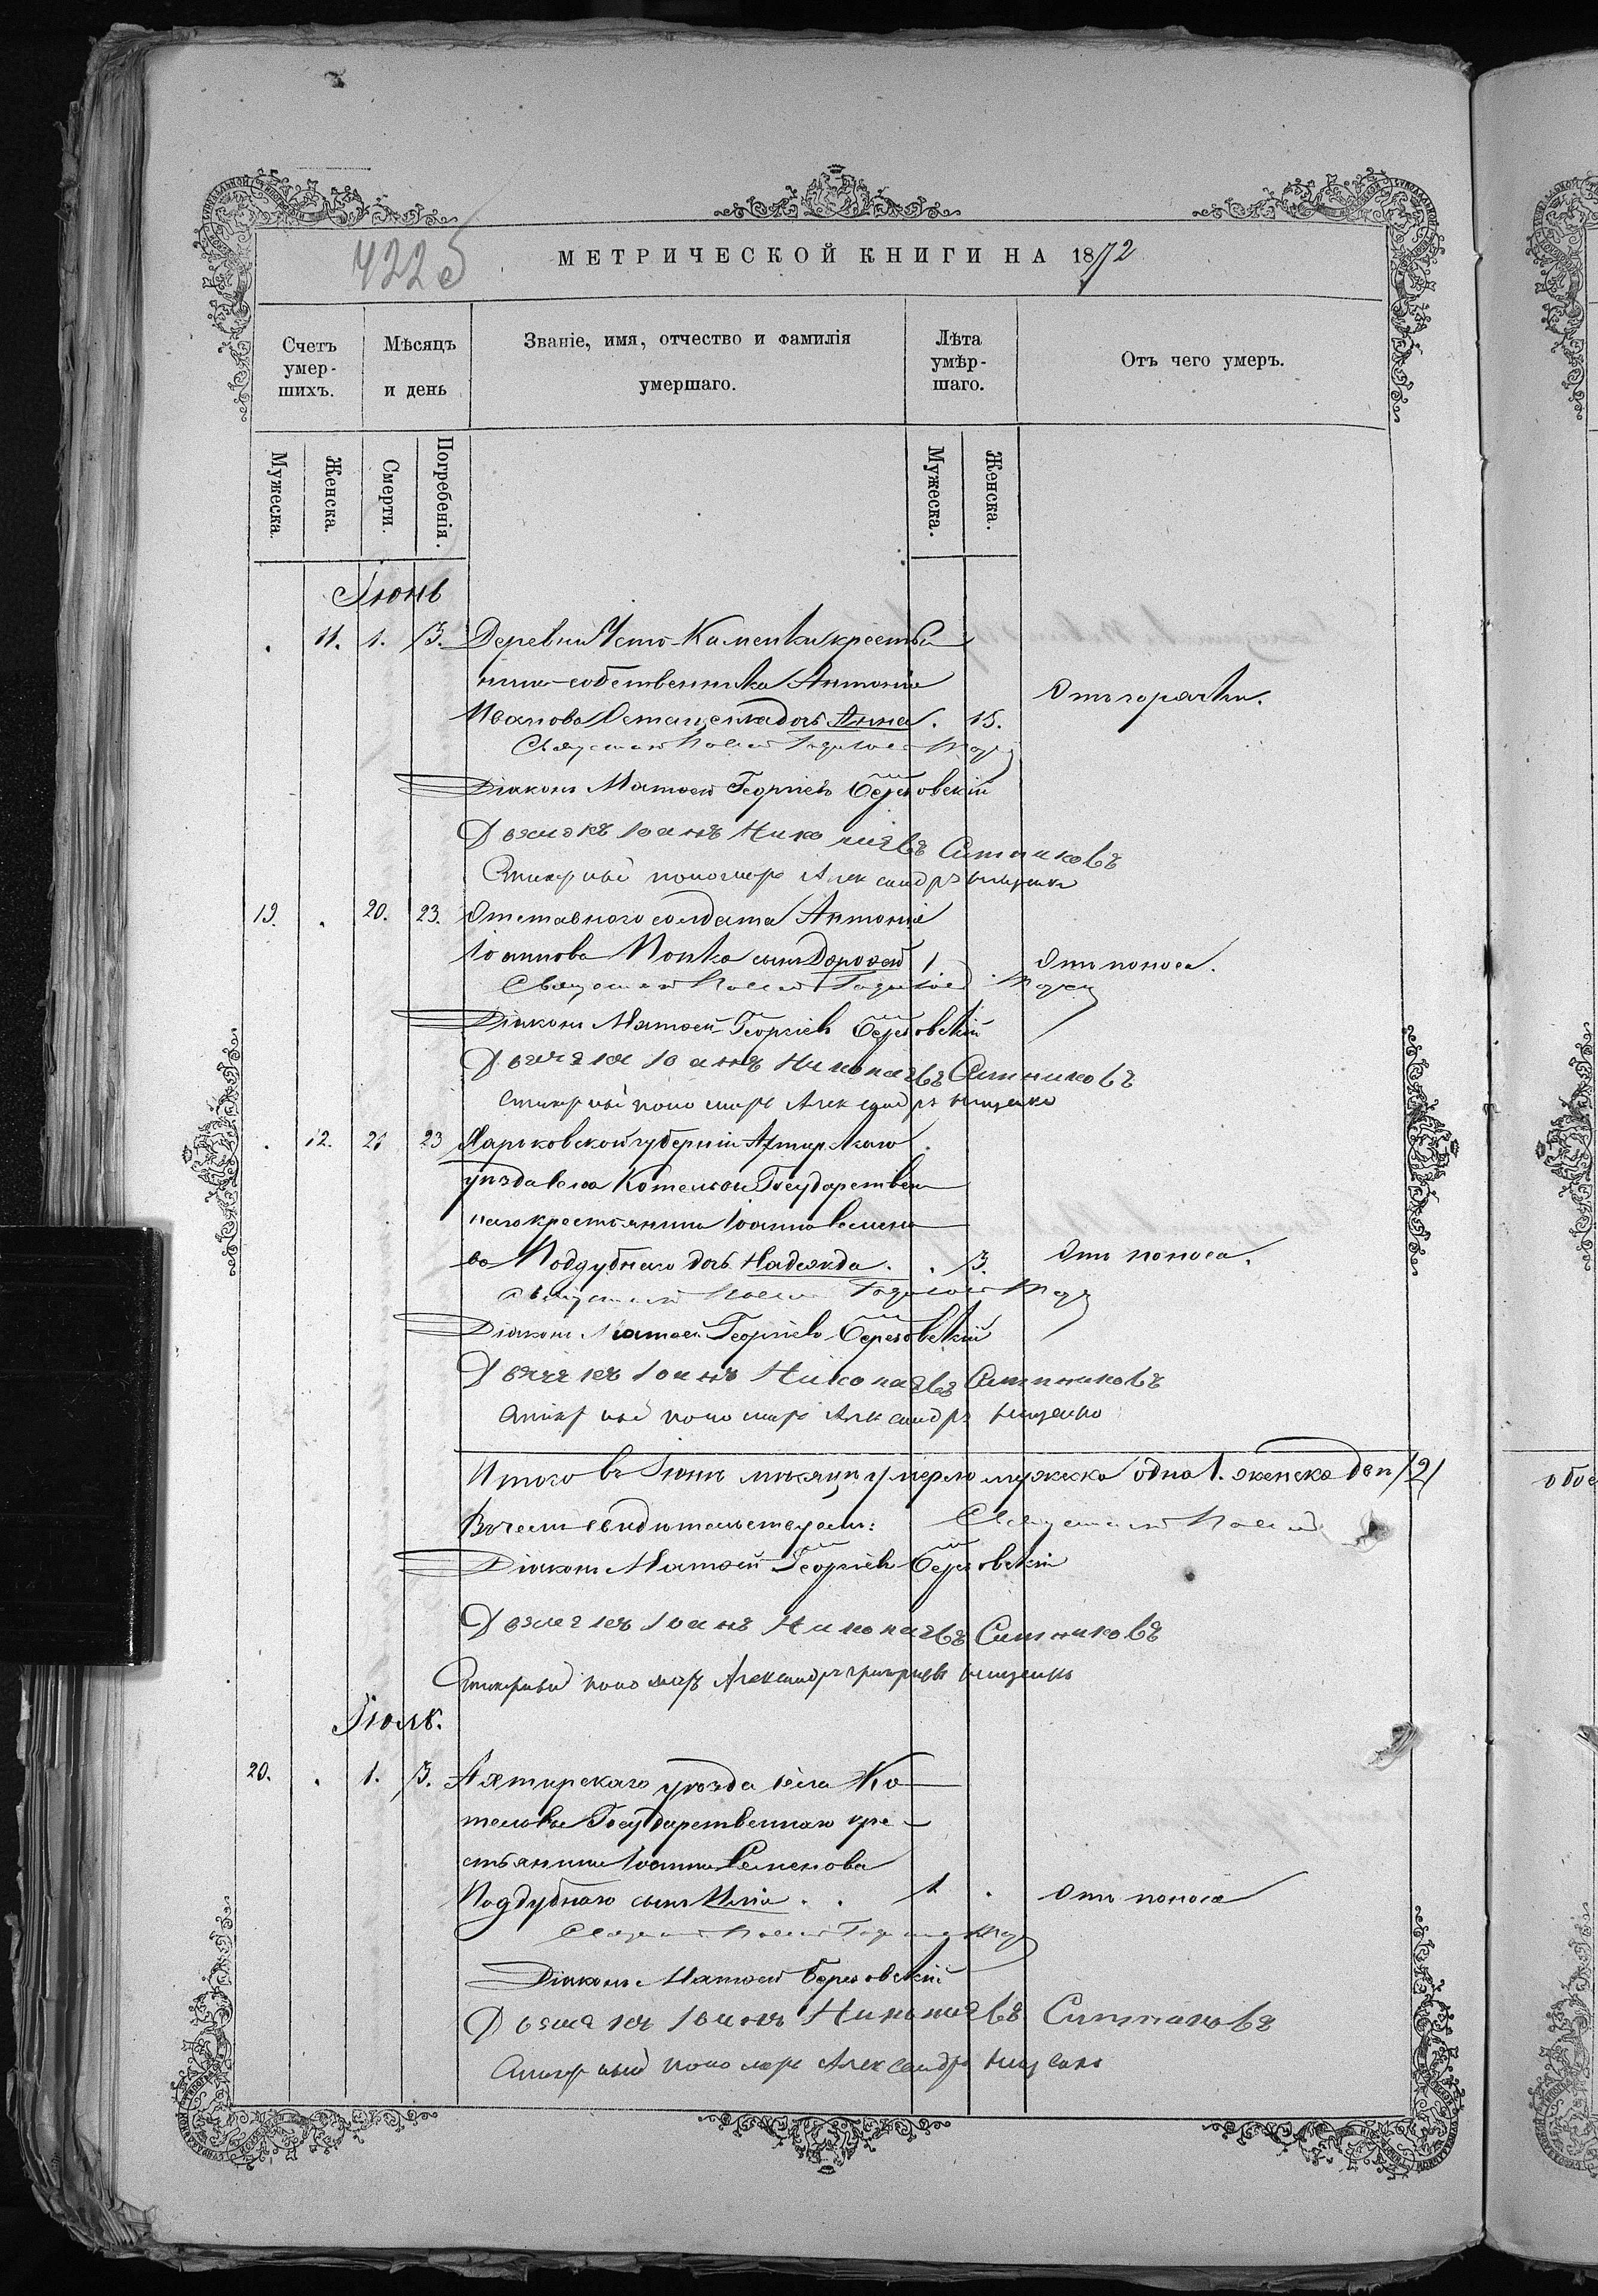 4225
МЕТРИЧЕСКОЙ КНИГИ НА 1872
Счетъ умер-шихъ.
Мѣсяцъ и день
Званіе, имя, отчество и фамилія умершаго.
Лѣта умѣр-шаго.
Отъ чего умеръ.
Мужеска.
Женска.
Смерти.
Погребенія.
Мужеска.
Женска.
Іюнь
11. 1. 3. Деревни Каменки крестья
нина-собственника Антонія
Иванова дочь Анна. 15. Отъ горячки.
Священникъ
Діаконъ Матѳей Георгіевъ Березовскій
Дьячекъ Іоаннъ Николаевъ Ситниковъ
пономарь Александръ
19. 20. 23. Отставного солдата Антонія
Іоаннова Попка сынъ Дороѳей 1 Отъ поноса.
Священникъ
Діаконъ Матѳей Георгіевъ Березовскій
Дьячекъ Іоаннъ Николаевъ Ситниковъ
пономарь Александръ
12. 21 23 Харьковской губерніи Ахтырскаго
уѣзда села Котельвы Государствен
наго крестьянина Іоанна Семено
ва Поддубнаго дочь Надежда. 3. Отъ поноса.
Священникъ
Діаконъ Матѳей Георгіевъ Березовскій
Дьячекъ Іоаннъ Николаевъ Ситниковъ
пономарь Александръ
Итого въ Іюнѣ мѣсяцѣ умерло мужеска одна 1. женска двѣ /2/
Въ чемъ свидѣтельствуемъ: Священникъ
Діаконъ Матѳей Георгіевъ Березовскій
Дьячекъ Іоаннъ Николаевъ Ситниковъ
пономарь Александръ Григорьевъ
Іюль.
20. 1. 3. Ахтырскаго уѣзда села Ко
тельвы Государственнаго кре-
стьянина Іоанна Семенова
Поддубнаго сынъ Илія. 1 Отъ поноса
Священникъ
Діаконъ Матѳей Березовскій
Дьячекъ Іоаннъ Николаевъ Ситниковъ
пономарь Александръ
обое